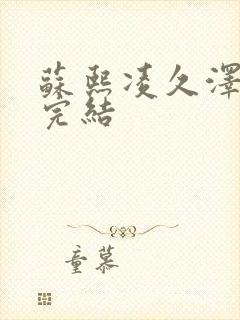 蘇熙凌久澤
完結
童慕